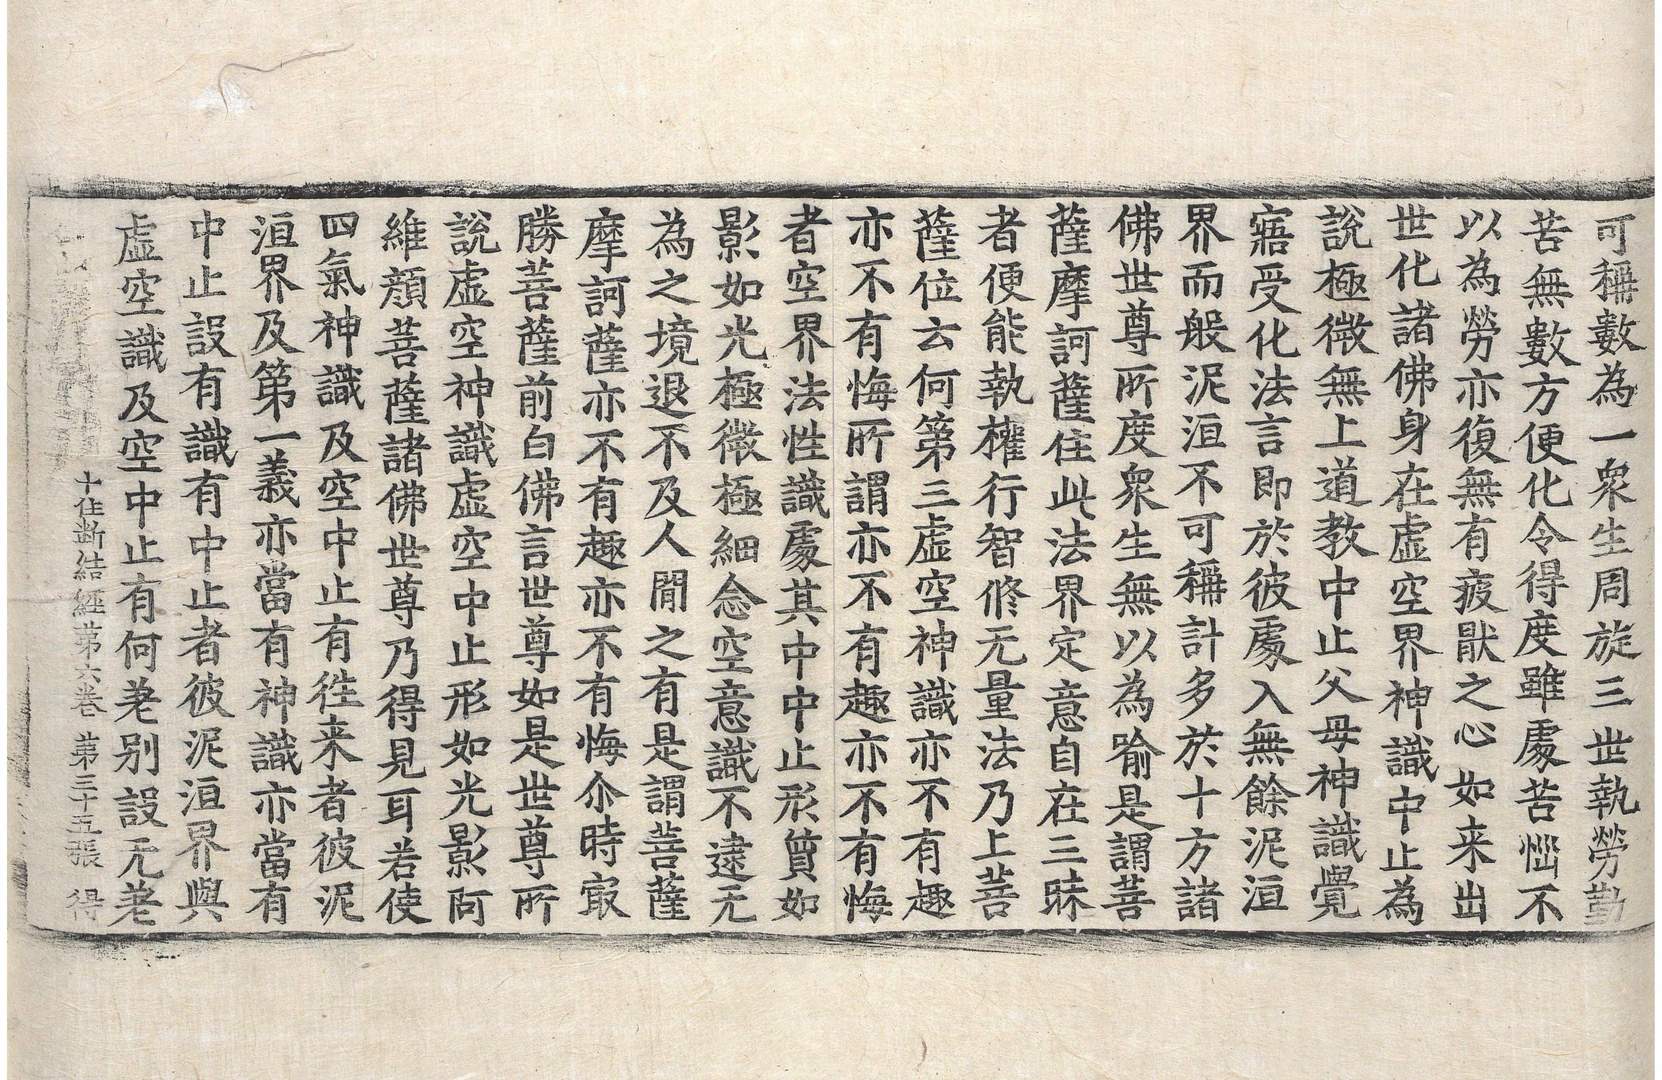 可稱數為一衆生周旋三世執勞勤
苦無數方便化令得度雖處苦惱不
以為勞亦復無有疲猒之心如来出
世化諸佛身在虛空界神識中止為
說極微無上道教中止父母神識覺
寤受化法言即於彼處入無餘泥洹
界而般泥洹不可稱計多於十方諸
佛世尊所度衆生無以為喻是謂菩
薩摩訶薩住此法界定意自在三昧
者便能執權行智修无量法乃上菩
薩位云何第三虛空神識亦不有趣
亦不有悔所謂亦不有趣亦不有悔
者空界法性識處其中中止形質如
影如光極微極細念空意識不逮无
為之境退不及人閒之有是謂菩薩
摩訶薩亦不有趣亦不有悔尒時㝡
勝菩薩前白佛言世尊如是世尊所
說虛空神識虛空中止形如光影阿
維顏菩薩諸佛世尊乃得見耳若使
四氣神識及空中止有徃来者彼泥
洹界及第一義亦當有神識亦當有
中止設有識有中止者彼泥洹界與
虛空識及空中止有何差别設无差
十住断結經第六卷 第三十五張 得